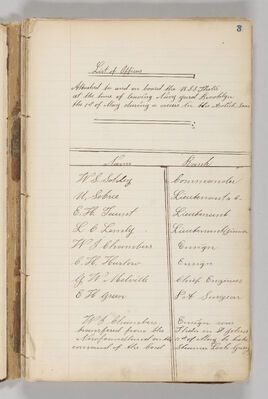 3
List of Officers
Attached to and on board the U.S.S. Thetis
at the time of leaving Navy yard Brooklyn
the 1st of May during a cruise in the Arctic Seas
Name Rank
W. S. Schley Commander
U. Sebree Lieutenant
E. H. Taunt Lieutenant
L. C. Lemly Lieutenant
W. I. Chambers Ensign
C. H. Harlow Ensign
G. W. Melville Chief Engineer
E. H. Green P.A. Surgeon
W. I. Chambers Ensign was
transfered from the Thetis in St Johns
Newfoundland on the of May to take
command of the Coal Steamer Loch Garry